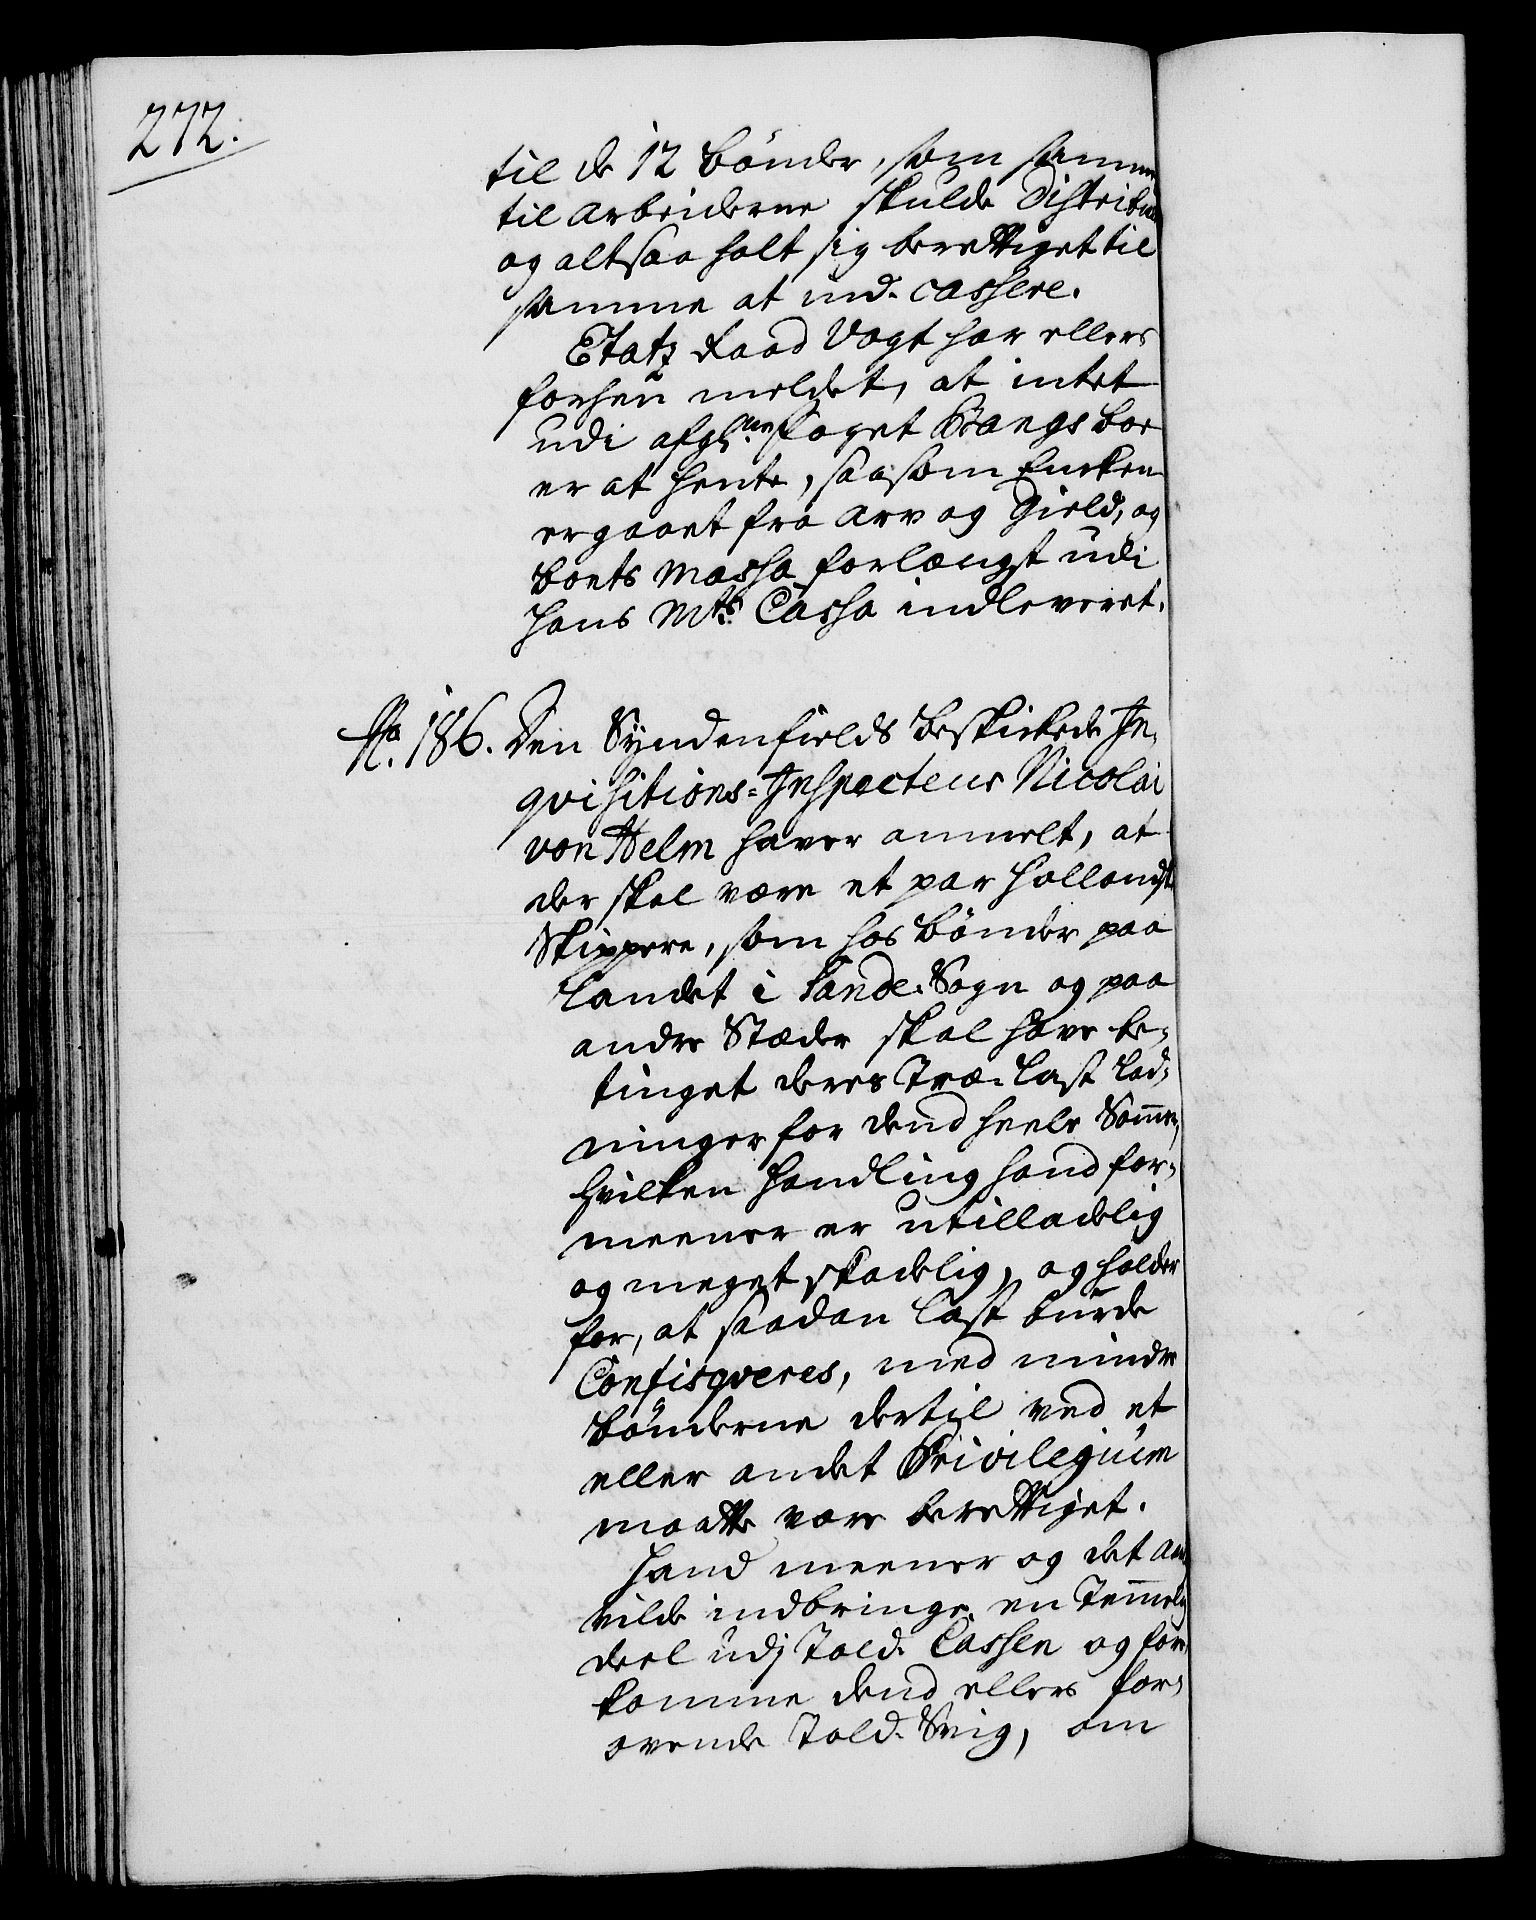 272.
til de 12 bönder, som samme
til arbeiderne skulde Distribue
og altsaa holt sig berettiget til
samme at ind-cassere.
Etatz Raad Vogt har ellers
forhen meldet, at intet
udi afgl. Foget Bangs boe
er at hente, saasom Encken
er gaaet fra Arv og Gield, og
boets Massa forlængst udi
Hans Mts. Cassa indleveret.
No. 186. Den Syndenfields beskickede In-
qvisitions-Inspecteur Nicolai
von Helm haver anmelt, at
der skal være et par hollandsk
Skippere, som hos bönder paa
Landet i Sande-Sogn og paa
andre Stæder skal have be-
tinget deres Træ-last Lad-
ninger for dend heele Sommer,
hvilken Handling hand for-
meener er utilladelig
og meget skadelig, og holder
for, at saadan Last burde
Confisqveres, med mindre
bönderne dertil ved et
eller andet Privilegium
maatte være berettiget.
Hand meener og det
vilde indbringe en Temmelig
deel udj Told-Cassen og fore-
komme dend ellers for-
övende Told-Svig, om